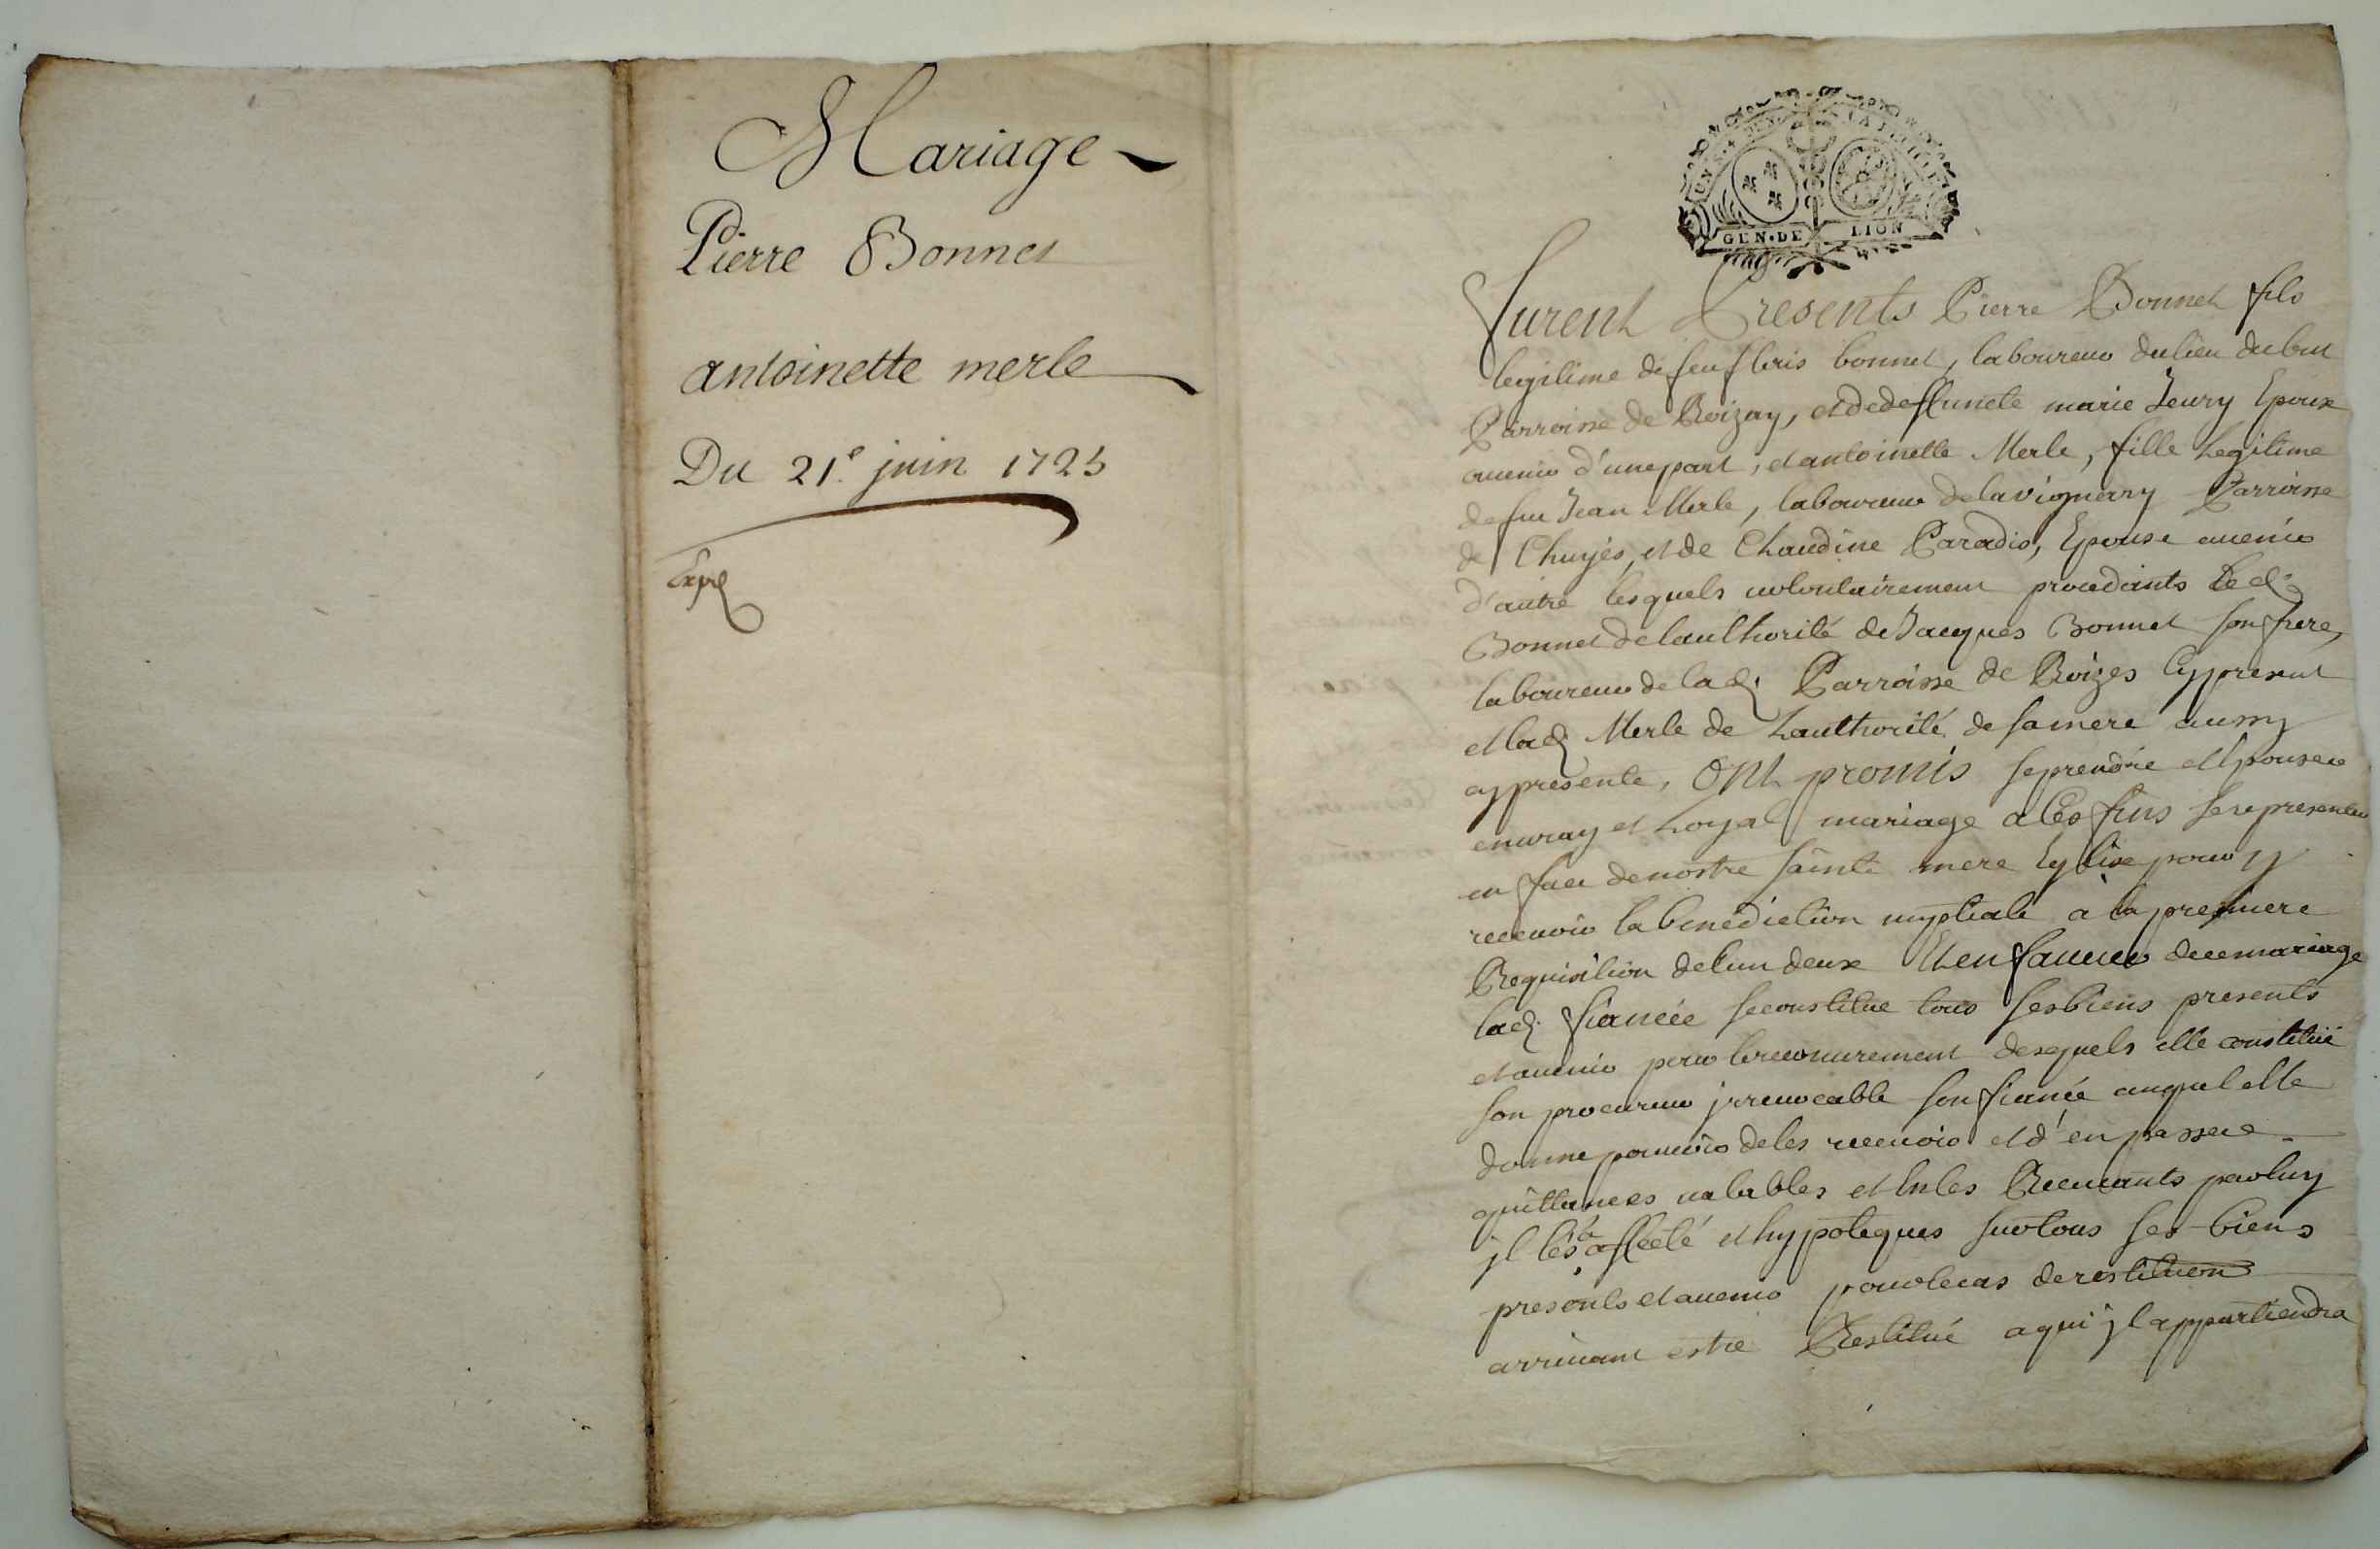 Mariage
Pierre Bonnet
antoinette merle
Du 21e juin 1725
Expé
GEN·DE LION
Furent Presents Pierre Bonnet fils
legitime de feu fleris bonnet, laboureur du lieu du
Parroisse de Roizay, et de deffuncte marie Jeury Epoux
auenir d'une part, et antoinette Merle, fille Legitime
de feu Jean Merle, laboureur de la vignerry Parroisse
de Chuyés, et de Claudine Paradis, Epouse auenir
d'autre lesquels uolontairement procedants Le d.
Bonnet de lauthorité de Jacques Bonnet son frere,
laboureur de lad. Parroisse de Roizes Cy present
et lad. Merle de Lauthorité de sa mere aussy
cy presente, Ont promis se prendre et Epouser
en uray et Loyal mariage a Ces fins se representer
en face de nostre sainte mere Eglise pour y
receuoir la benediction nuptiale a la premiere
Requisition de lun deux Et en faueur de ce mariage
lad. fiancée se constitue tous ses biens presents
et auenir pour le recouurement desquels elle constitüé
son procureur jrreuocable son fiancé auquel elle
donne pouuoir de les receuoir et d'en passer
quittances ualables et les Receuants par luy
jl les a affecté et hypoteques sur tous ses biens
presents et auenir pour le cas de restitution
arriuant estre Restitué a qui jl appartiendra